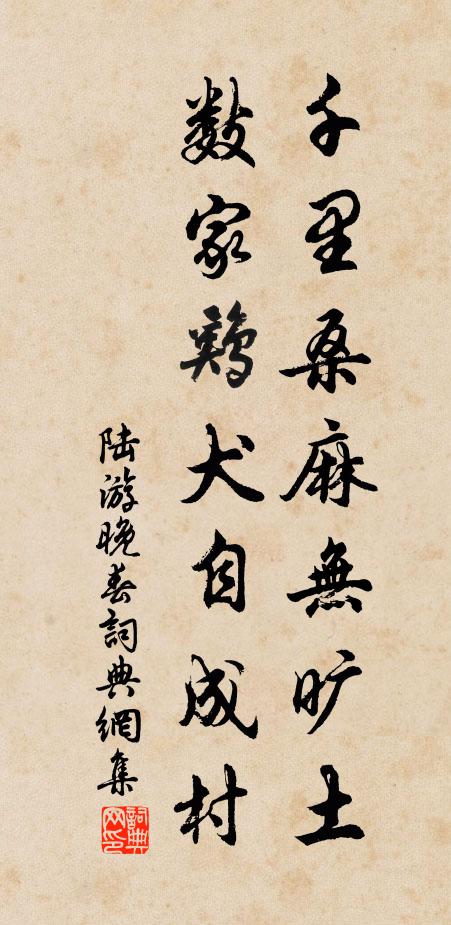 千里桑麻無旷土
数家鷄犬自成村
陆游晚春詞典網集
詞典网印